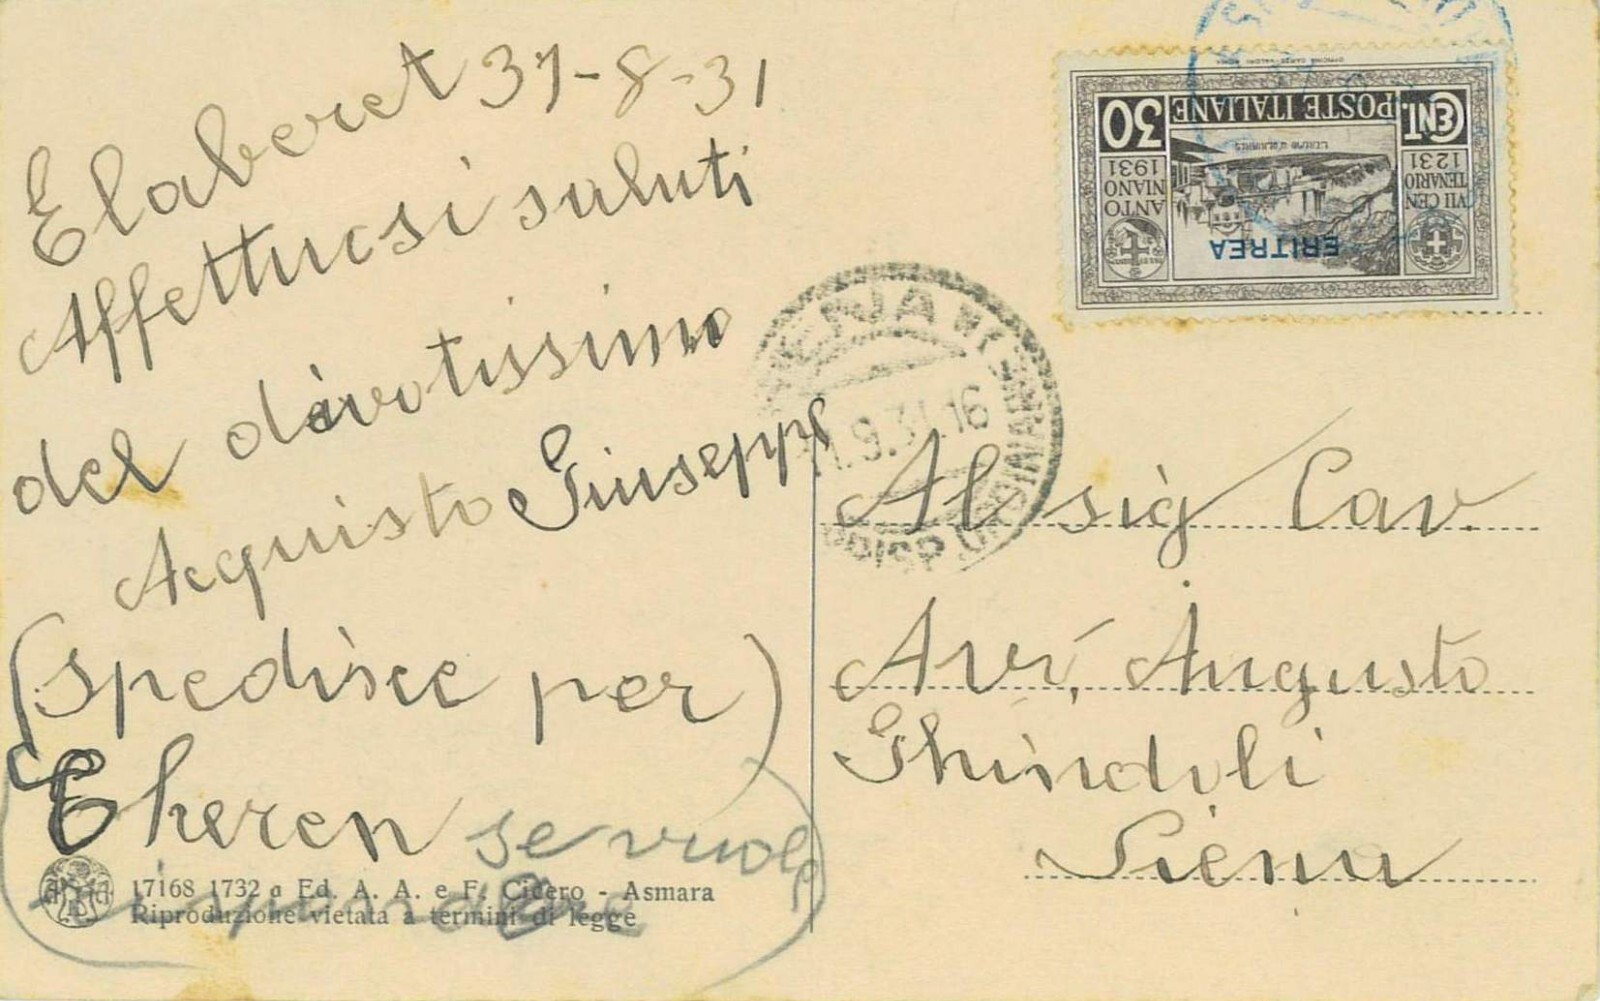 Elaberet 31-8-31
Affettuosi saluti
del divotissimo
Acquisto Giuseppe
(spedisce per)
Cheren se vuole
17168 1732 a Ed. A. A. e F. Cicero - Asmara
Riproduzione vietata a termini di legge
CENT. POSTE ITALIANE 30
VII CENTENARIO
1231
ANTONIANO
1931
L'EREMO D'OLIVARES
ERITREA
9.31.16
Al sig Cav.
Avv. Augusto
Ghindoli
Siena